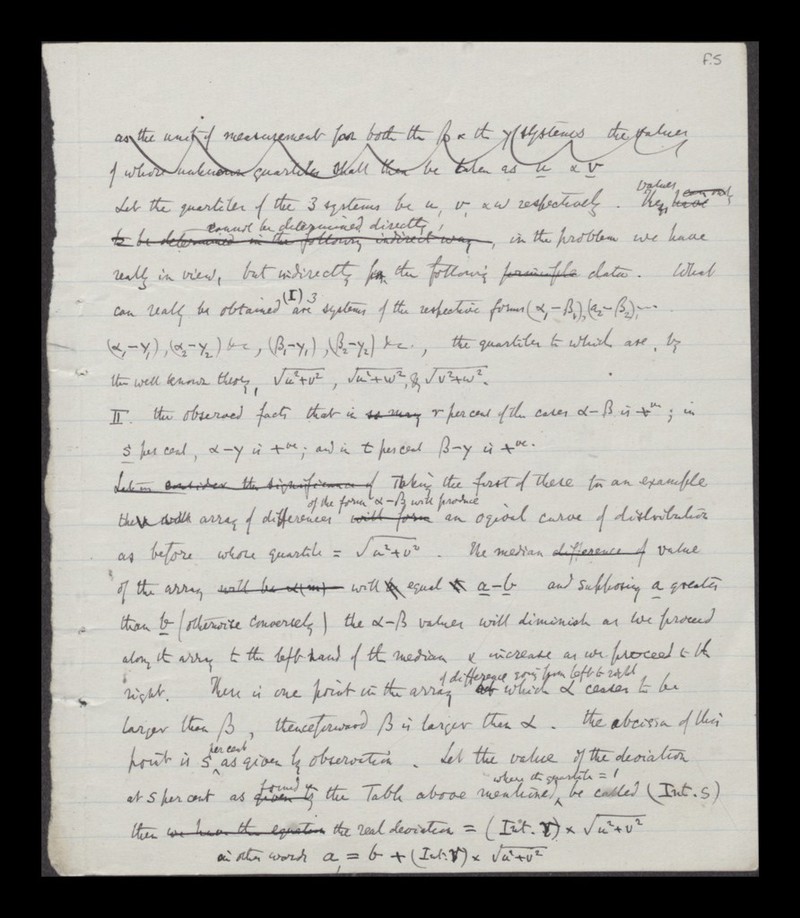 F.5
as the unit of measurement for both the β & the γ systems the values
of whose unknown quartiles shall then be taken as u & v
Let the quartiles of the 3 systems be u, v, & w respectively. values
to be determined in the following indirect way, cannot be determined directly, in the problem we have
really in view, but indirectly from the following data. What
can really be obtained (I) are 3 systems of the respective forms (α₁-β₁), (α₂-β₂), ...
(α₁-γ₁), (α₂-γ₂) &c, (β₁-γ₁), (β₂-γ₂) &c., the quartiles to which are, by
the well known theory, √u²+v², √u²+w², & √v²+w².
II. the observed facts that in so many r per cent of the cases α-β is +ve; in
s per cent, α-γ is +ve; and in t per cent β-γ is +ve.
Let us consider the significance of Taking the first of these for an example
the array of differences of the form α-β will produce will form an ogival curve of distribution
as before whose quartile = √u²+v². The median difference of value
of the array will be will equal a-b and supposing a greater
than b (otherwise conversely) the α-β values will diminish as we proceed
along the array to the left hand of the median & increase as we proceed to the
right. There is one point in the array of difference going from left to right at which α ceases to be
larger than β, thenceforward β is larger than α. The abcissa of this
point is s per cent as given by observation. Let the value of the deviation
at s per cent as given by found in the Table above mentioned, where the quartile = 1 be called (Int. s)
then we have the equation the real deviation = (Int. r) × √u²+v²
in other words a = b + (Int. r) × √u²+v²